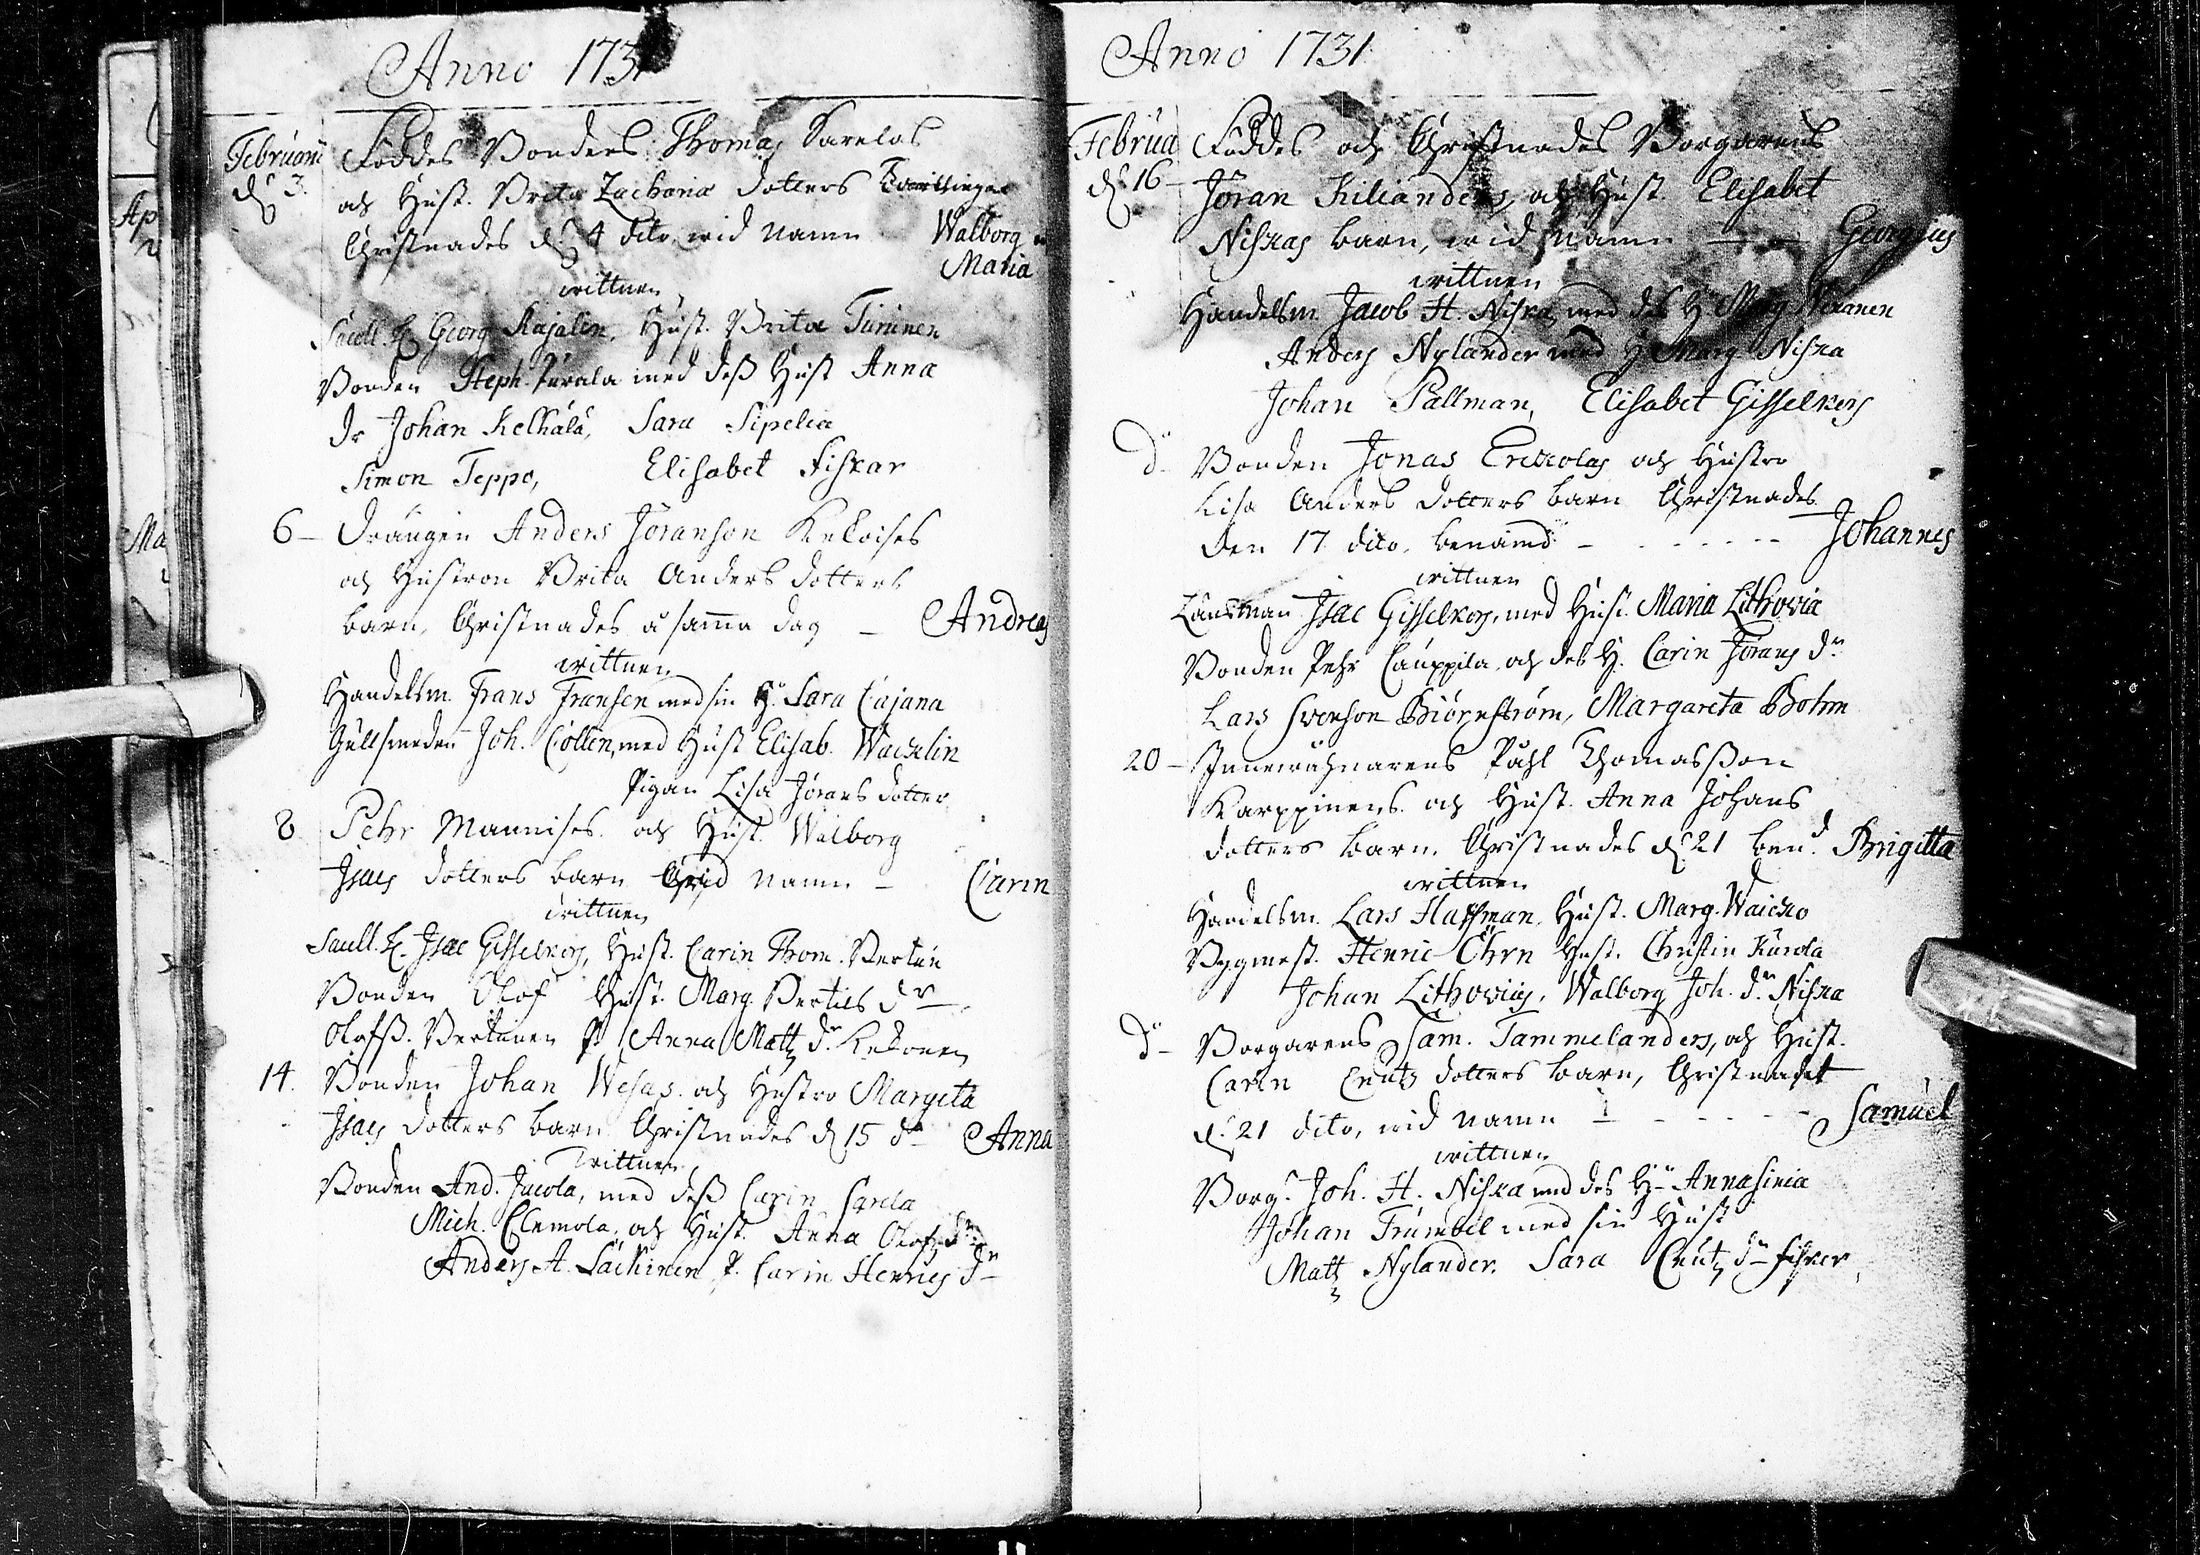 Anno 1731
Februarii Föddes Bondens Thomas Sarelas
d. 3. och Hust. Brita Zachariæ dotters Tvillingar
Christnades d. 4 dito, wid namn Walborg
Maria
wittnen
Georg Kajalen, Hust. Brita Turunen
Bonden Steph. Jurala med dess Hust Anna
Dr Johan Kelhälä, Sara Sipelia
Simon Teppo, Elisabet Fiskar
6 - Drängen Anders Joranson Keloises
och Hustron Brita Anders dotters
barn, Christnades å samma dag - Andreas
wittnen
Handelsm. Frans Fransen med sin H. Sara Cajana
Gullsmeden Joh. Collin, med Hust Elisab. Wacklin
Pigan Lisa Jörans dotter
8 Pehr Mannises och Hust. Walborg
Isacs dotters barn wid namn - Carin
wittnen
Isac Gisselkors, Hust. Carin Thom. Vertun
Bonden Olof Hust. Marg. Bertils dr
Olofss. Vertanen P. Anna Matz dr Kekonen
14. Bonden Johan Wesas och Hustro Margeta
Isacs dotters barn Christnades d 15 do Anna
wittnen
Bonden And. Jacola, med dess Carin Sarela
Mich. Clemola, och Hust. Anna Olofs dr
Anders A. Läckinen, P. Carin Henrics dr
Anno 1731
Februa Föddes och Christnades Borgarens
d. 16 - Jöran Kilianders, och Hust. Elisabet
Niskas barn, wid namn - Georgius
wittnen
Handelsm. Jacob H. Niska med des H Marg
Anders Nylander med H. Marg Niska
Johan Pallman, Elisabet Gisselkors
do Bonden Jonas Erckolas och Hustro
Lisa Anders dotters barn Christnades
den 17 dito, benämd - - - - - - Johannes
wittnen
Länsman Isac Gisselkors, med Hust. Maria Lithovia
Bonden Pehr Cauppila, och des H. Carin Jörans dr
Lars Svenson Biörkström, Margareta Bohm
20 - Innewåhnarens Påhl Thomasson
Karppinens och Hust. Anna Johans
dotters barn, Christnades d 21 ben.d Brigitta
wittnen
Handelsm. Lars Huffman, Hust. Marg. Waicko
Bygmest. Henric Öhrn Hust. Christin Kurola
Johan Lithovius, Walborg Joh. dr Niska
do - Borgarens Sam. Tammelanders, och Hust.
Carin Cnuts dotters barn, Christnadet
d. 21 dito, wid namn - - - - - Samuel
wittnen
Borg. Joh. H. Niska med des H. Anna Simia
Johan Trumbel med sin Hust
Matz Nylander. Sara Cnutz dr Fisker